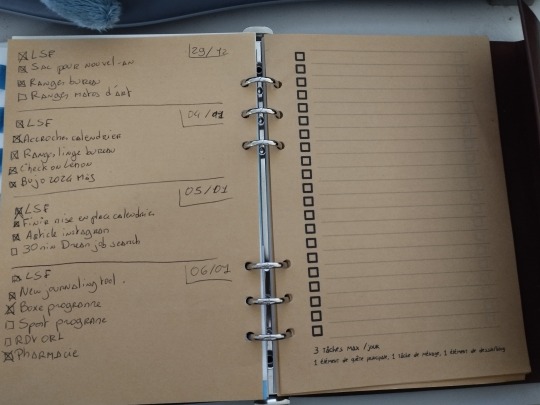 LSF
29/12
Sac pour nouvel-an
Ranger bureau
Ranger matos d'art
LSF
04/01
Accrocher calendrier
Ranger linge bureau
Check on Lenon
Bujo 2024 Màs
05/01
LSF
Finir mise en place calendrier
Article instagram
30 min Dream job search
LSF
06/01
New journaling tool.
Boxe programme
Sport programme
RDV ORL
PHARMACIE
3 Tâches max / jour
1 élément de quête principale, 1 tâche de ménage, 1 élément de